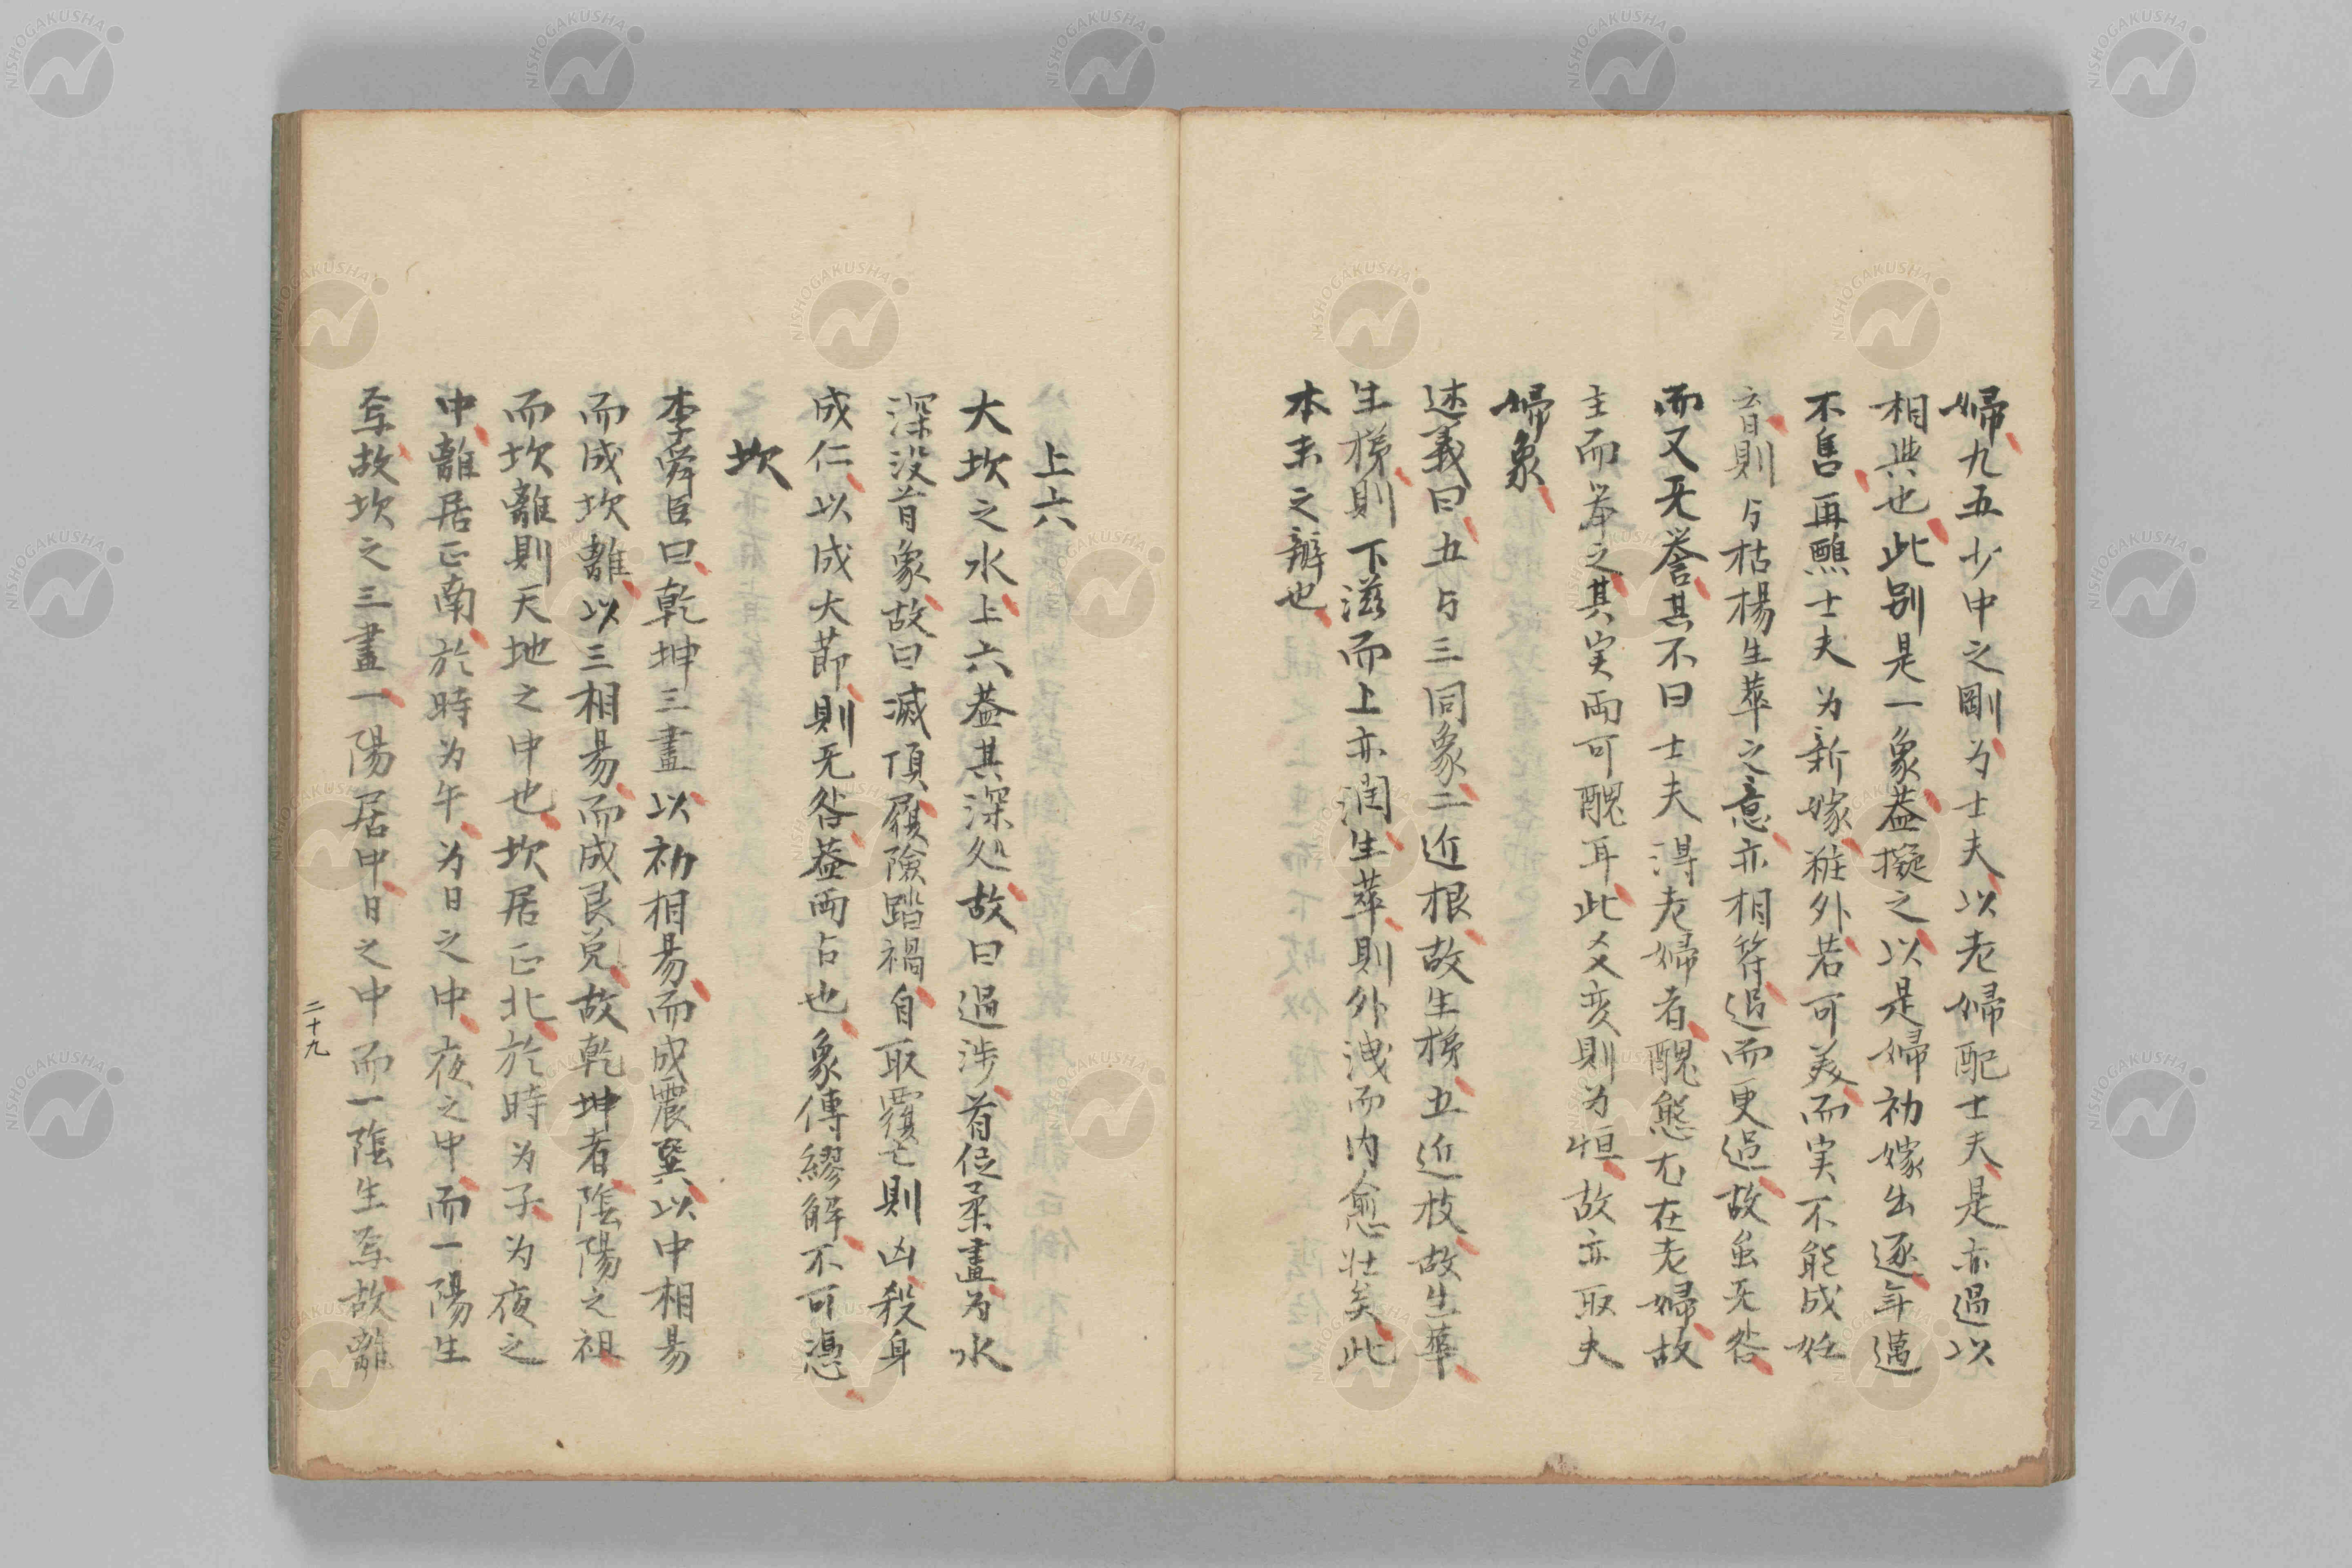 婦九五少中之剛为士夫以老婦配士夫是亦過以
相與也此别是一象葢擬之以是婦初嫁出逐年邁
不售再醮士夫为新嫁粧外若可美而実不能成妊
育則与枯楊生華之意亦相符過而更過故虽无咎
而又无誉其不曰士夫得老婦者醜態尤在老婦故
主而举之其実両可醜耳此爻変則为恒故亦取夫
婦象
述義曰五与三同象二近根故生稊五近枝故生華
生稊則下滋而上亦潤生華則外洩而内愈壮矣此
本末之辨也
上六
大坎之水上六葢其深処故曰過渉首位柔畫为水
深没首象故曰滅頂履險蹈禍自取覆亡則凶殺身
成仁以成大莭則无咎葢両占也象傳繆解不可憑
坎
李舜臣曰乾坤三畫以初相易而成震巽以中相易
而成坎離以三相易而成艮兌故乾坤者陰陽之祖
而坎離則天地之中也坎居正北於時为子为夜之
中離居正南於時为午为日之中夜之中而一陽生
焉故坎之三畫一陽居中日之中而一陰生焉故離
二十九
NISHOGAKUSHA